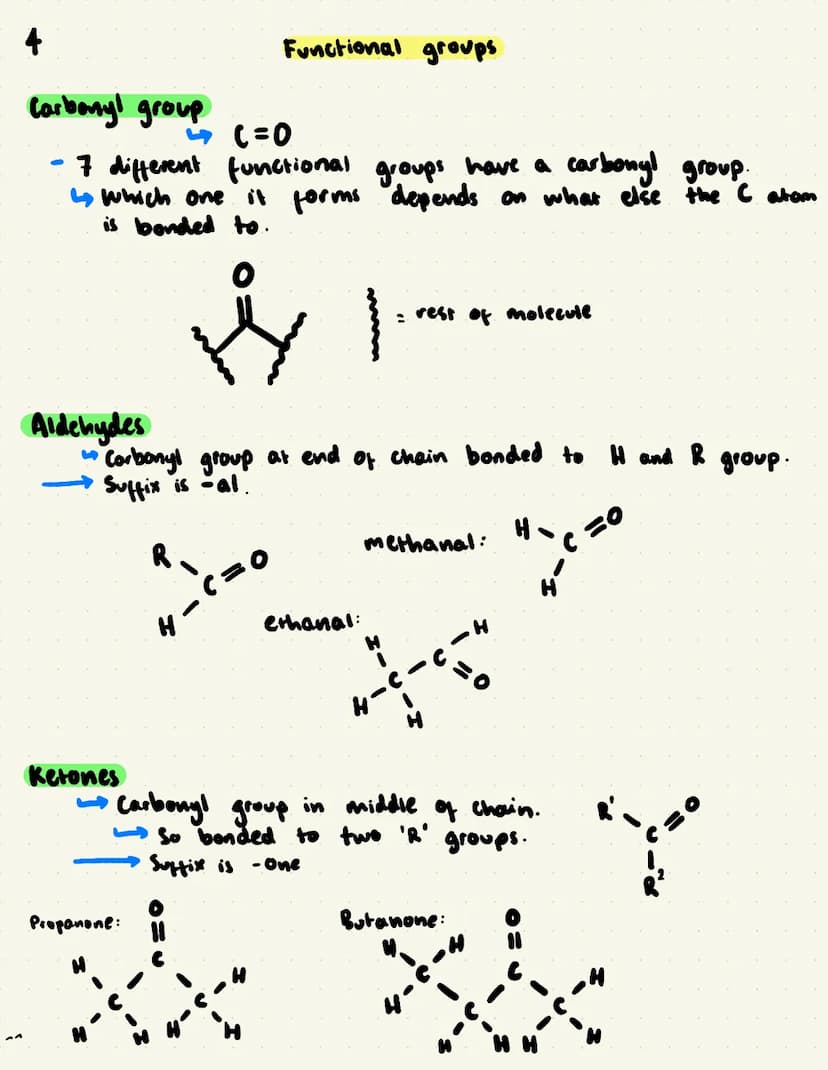 4
Functional groups
Carbonyl group
↳ C=O
- 7 different functional groups have a carbonyl group.
↳ Which one it forms depends on what else the C atom
is bonded to.
O
= rest of molecule
Aldehydes
↳ Carbonyl group at end of chain bonded to H and R group.
→ Suffix is -al.
methanal:
H C O
H
R C O
H
ethanal:
H C H
C O
H H
Ketones
↳ Carbonyl group in middle of chain.
↳ So bonded to two 'R' groups.
→ Suffix is -one
R' C O
R²
Propanone:
O
C
H C C H
H H H H
Butanone:
O
H H C
H C C C H
H H H H